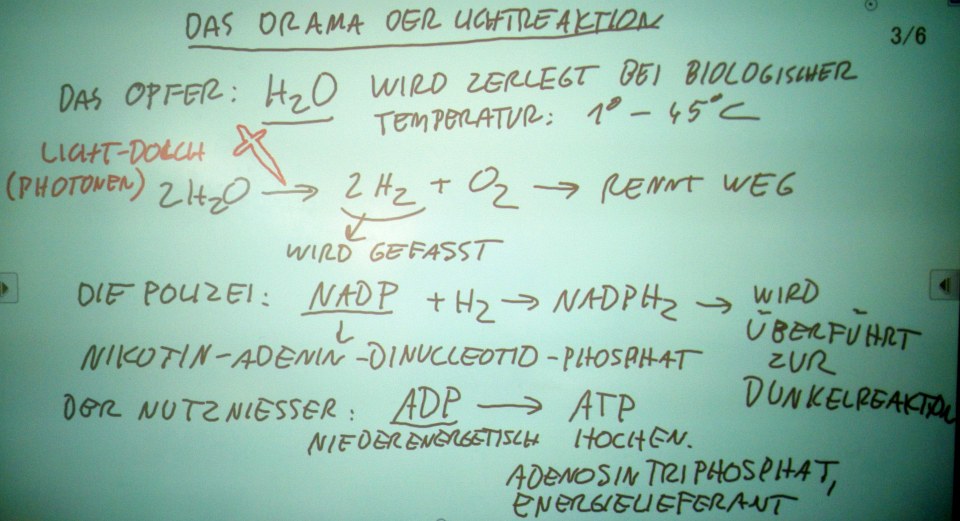 DAS DRAMA DER LICHTREAKTION
3/6
DAS OPFER: H₂O WIRD ZERLEGT BEI BIOLOGISCHER
TEMPERATUR: 1° – 45°C
LICHT-DOLCH
(PHOTONEN)
2H₂O → 2H₂ + O₂ → RENNT WEG
WIRD GEFASST
DIE POLIZEI: NADP + H₂ → NADPH₂ → WIRD
ÜBERFÜHRT
ZUR
DUNKELREAKTION
NIKOTIN-ADENIN-DINUCLEOTID-PHOSPHAT
DER NUTZNIESSER: ADP → ATP
NIEDERENERGETISCH HOCHEN.
ADENOSINTRIPHOSPHAT,
ENERGIELIEFERANT